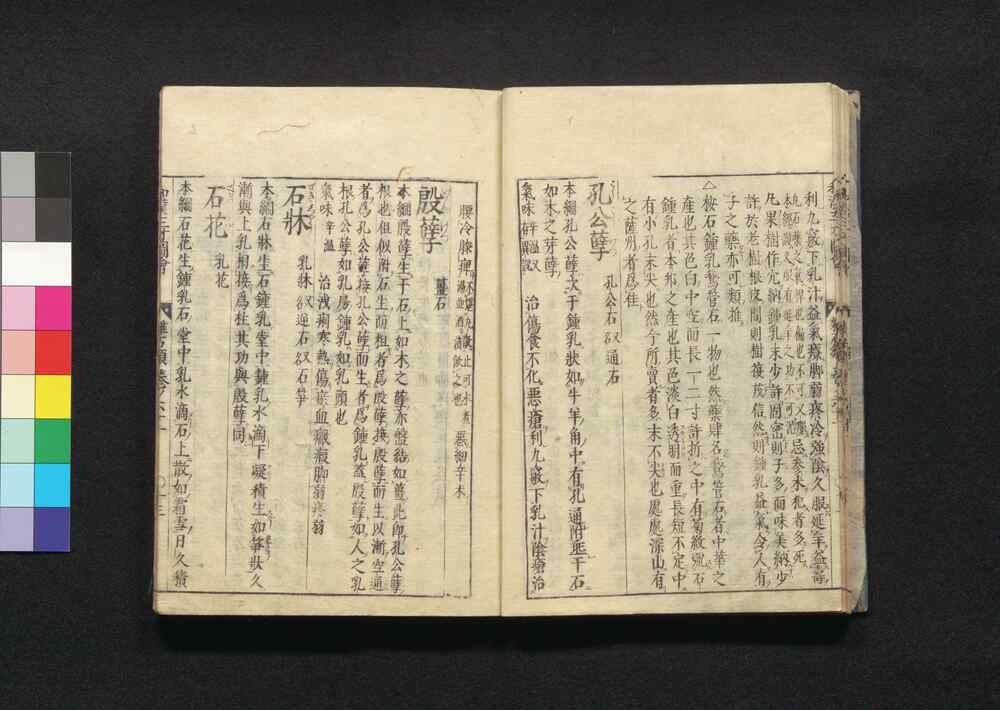 利九竅下乳汁益氣療脚弱疼冷強陰久服延年益壽
凡果樹作穴納鍾乳末少許固密則子多而味美納少
許於老樹根皮間則樹復茂信然則鍾乳益氣令人有
子之驗亦可類推
△按石鍾乳鵞管石一物也然藥肆名鵞管石者中華之
産也其色白中空而長一二寸許折之中有菊紋號石
鍾乳者本邦之産也其色淡白透明而重長短不定中
有小孔末尖也然今所賣者多末不尖也處處深山有
之薩州者爲佳
孔公孽
孔公石 通石
本綱孔公孽次于鍾乳狀如牛羊角中有孔通附垂于石
如木之芽孽
氣味 辛溫
治傷食不化惡瘡利九竅下乳汁陰瘡治
腰冷膝痺
惡細辛木
殷孽
薑石
本綱殷孽生于石上如木之孽亦盤結如薑此即孔公孽
根也但似附石生而粗者爲殷孽接殷孽而生以漸空通
者爲孔公孽接孔公孽而生者爲鍾乳蓋殷孽如人之乳
根孔公孽如乳房鍾乳如乳頭也
氣味 辛溫
治洩痢寒熱傷瘀血癥瘕脚弱疼弱
石牀
乳牀 逆石 石笋
本綱石牀生石鍾乳堂中鍾乳水滴下凝積生如笋狀久
漸與上乳相接爲柱其功與殷孽同
石花
乳花
本綱石花生鍾乳石堂中乳水滴石上散如霜雪日久積